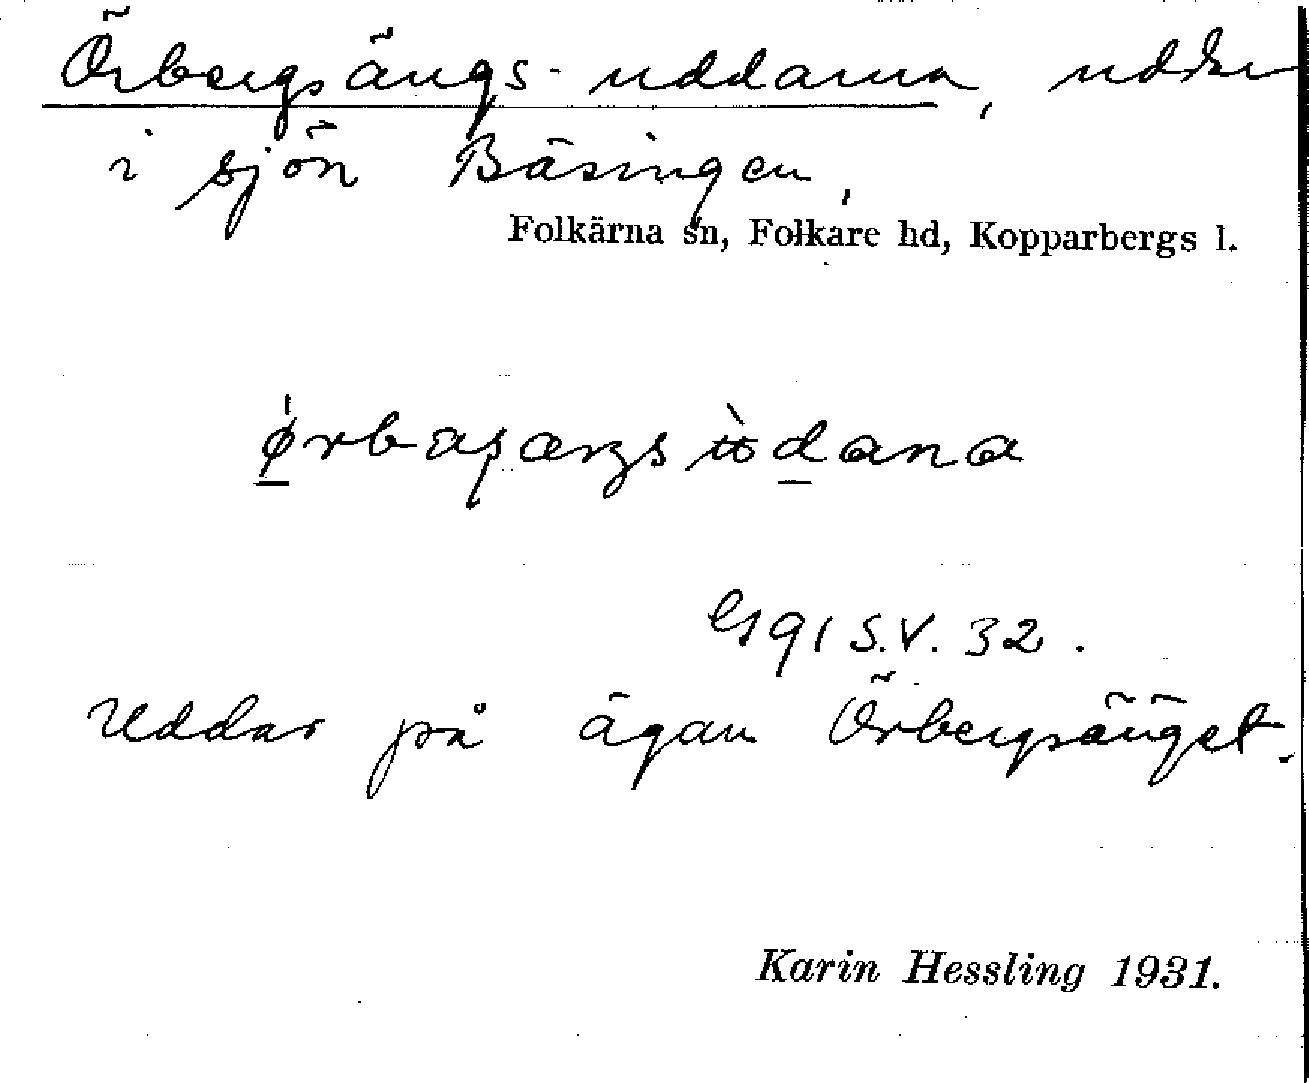 Örbergsängs-uddarna, uddar
i sjön Bäsingen,
Folkärna sn, Folkare hd, Kopparbergs l.
91 S.V. 32.
Uddar på ägan Örbergsänget.
Karin Hessling 1931.